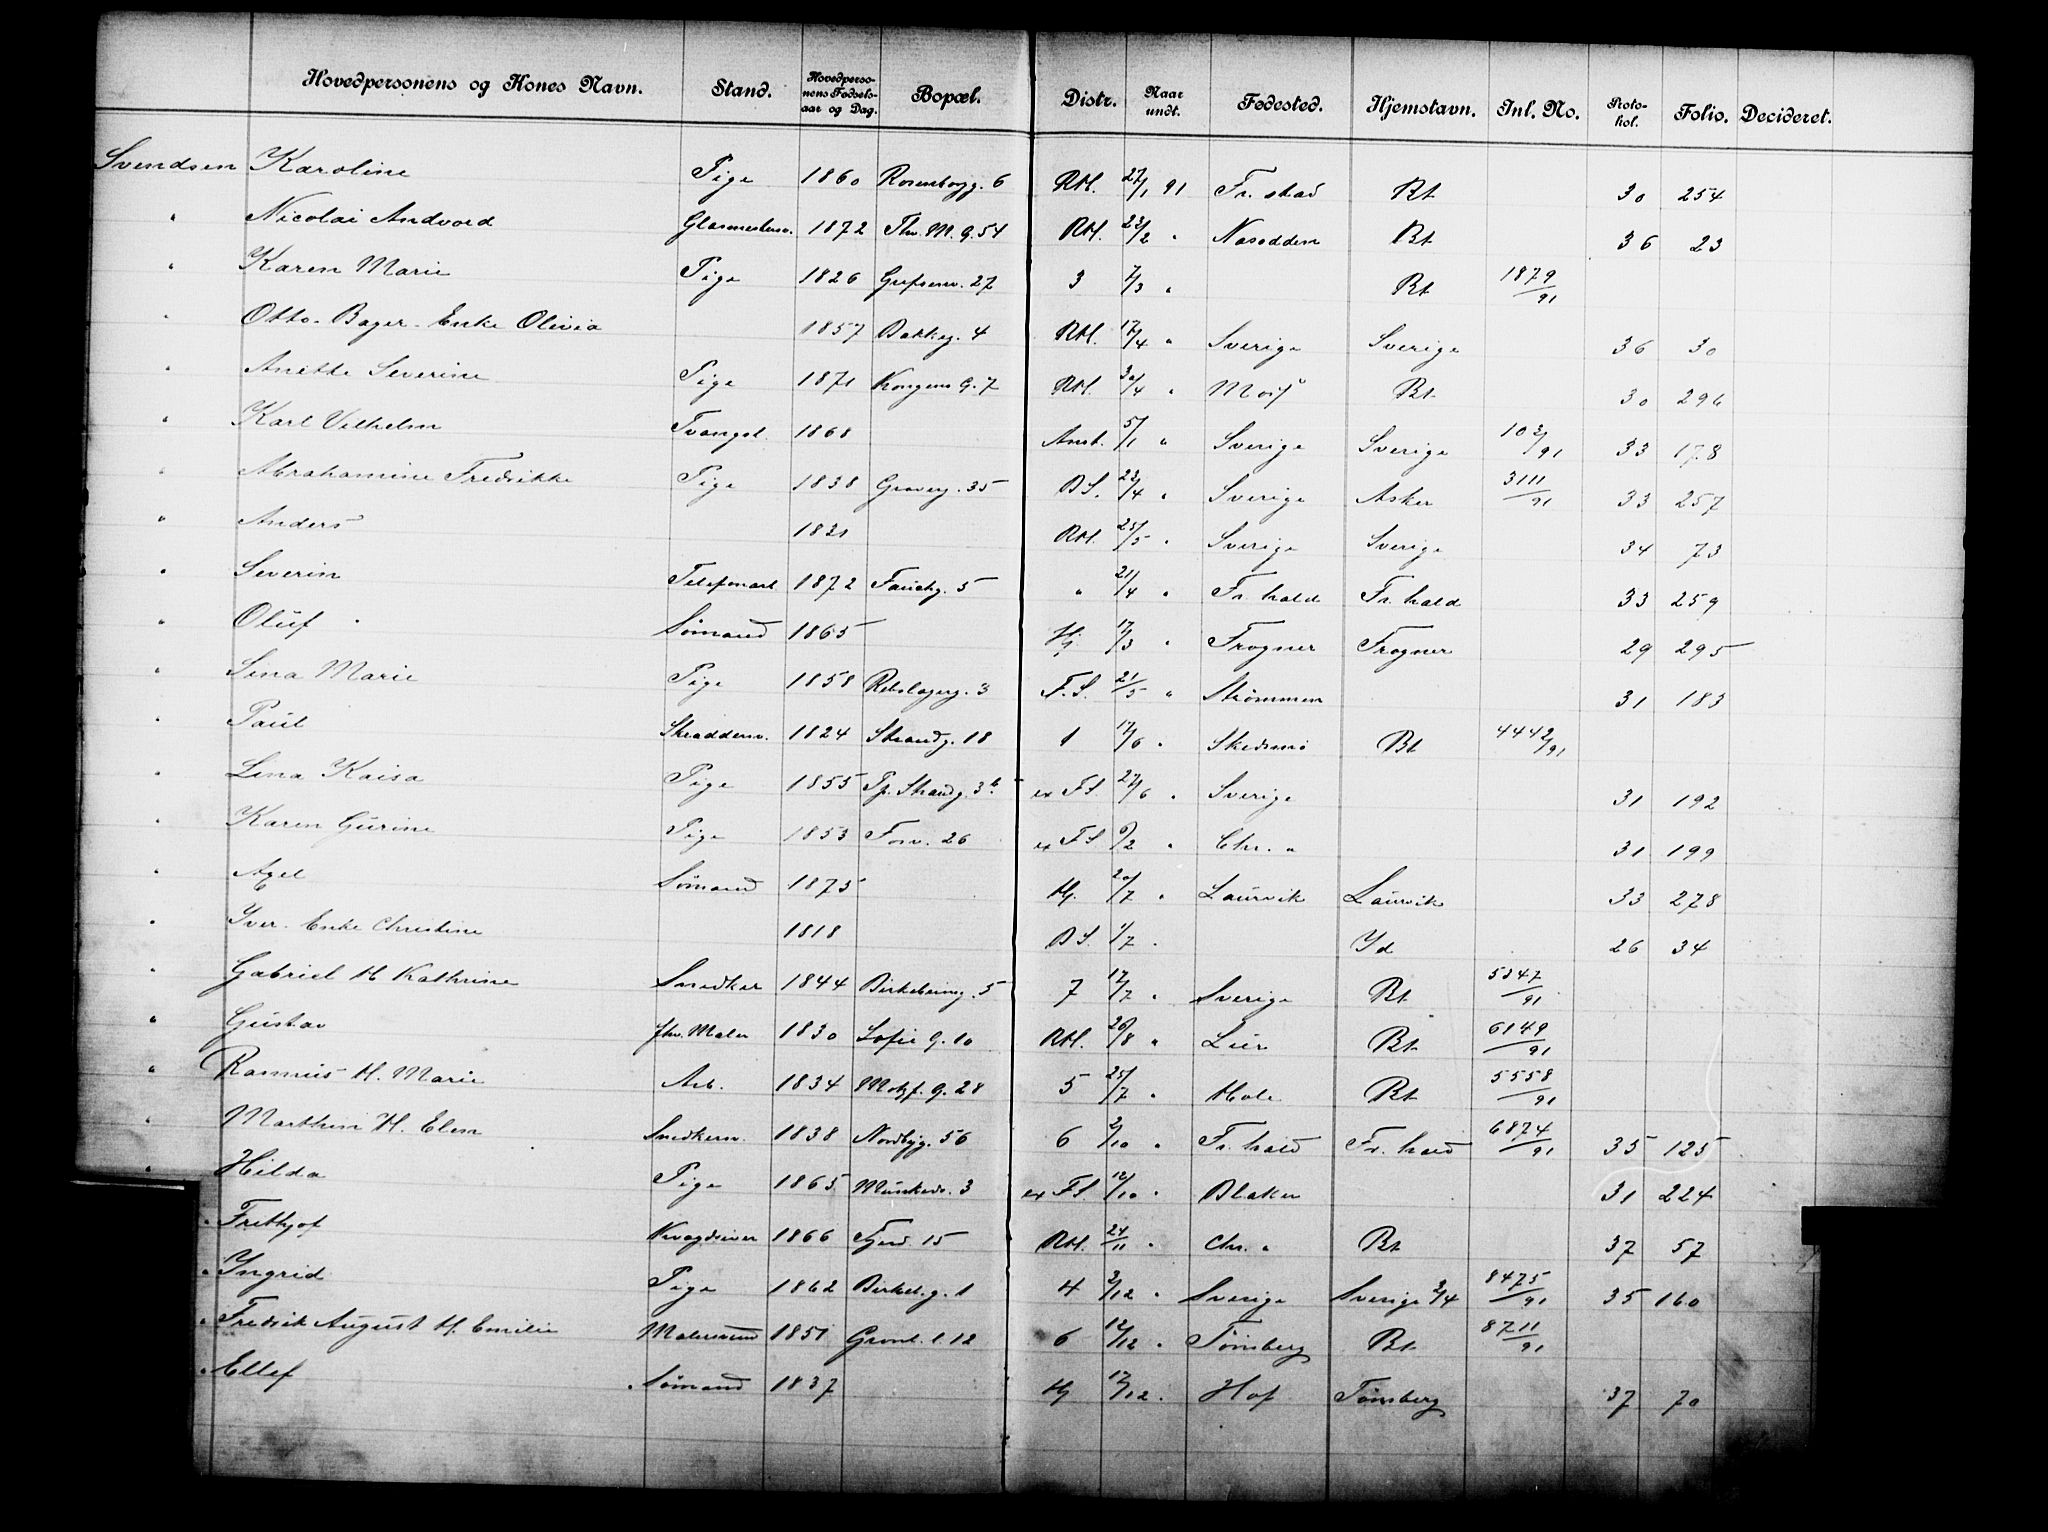 Hovedpersonens og Kones Navn. Stand. Hovedpersonens Fødselsaar og Dag. Bopæl. Distr. Naar undt. Fødested. Hjemstavn. Jnl. No. Protokol. Folio. Decideret.
Svendsen Karoline Pige 1860 Rosenborgg. 6 RM. 27/1 91 Fr. stad Bt 30 254
" Nicolai Andvord Glasmestersv. 1872 Thv. M. g. 54 RM. 23/2 " Næsodden Bt 36 23
" Karen Marie Pige 1826 Grefsenv. 27 3 7/3 " Bt 1879/91
" Otto. Bager. Enke Olivia 1857 Bakkeg. 4 RM. 17/4 " Sverige Sverige 36 30
" Anette Severine Pige 1871 Kongens g. 7 RM. 30/4 " Moss Bt 30 296
" Karl Vilhelm Tvangst. 1868 Amt. 5/1 " Sverige Sverige 102/91 33 178
" Abrahamine Fredrikke Pige 1838 Graverg. 35 BS. 23/4 " Sverige Asker 3111/91 33 257
" Anders 1821 RM. 25/5 " Sverige Sverige 34 73
" Severin Telefonarb 1872 Fauchg. 5 " 21/4 " Fr. hald Fr. hald 33 259
" Oluf Sømand 1865 Hj 17/3 " Frogner Frogner 29 295
" Lina Marie Pige 1858 Rebslagerg. 3 F. S. 21/5 " Strømmen 31 183
" Paul Skræddersv. 1824 Strandg. 18 1 17/6 " Skedsmo Bt 4442/91
" Lina Kaisa Pige 1855 Tp. Strandg. 3b ex FS 27/6 " Sverige 31 192
" Karen Gurine Pige 1853 Forv. 26 ex FS 6/2 " Chr. a 31 199
" Axel Sømand 1875 Hj. 20/7 " Laurvik Laurvik 33 278
" Iver. Enke Christine 1818 BS. 1/7 " Yd 26 34
" Gabriel H Kathrine Snedker 1844 Birkebeinerg. 5 7 17/7 " Sverige Bt 5347/91
" Gustav fhv. Maler 1830 Sofie g. 10 RM. 26/8 " Lier Bt 6149/91
" Rasmus H. Marie Arb. 1834 Motzf. g. 28 5 25/7 " Hole Bt 5558/91
" Marthin H. Elen Snedkersv. 1838 Nordbyg. 56 6 2/10 " Fr. hald Fr. hald 6874/91 35 125
" Hilda Pige 1865 Munkeds. 3 ex FS. 12/10 " Blaker 31 224
" Frithjof 1866 15 RM. 24/11 " Chr. a Bt 37 57
" Ingrid Pige 1862 Birkeb. g. 1 4 2/12 " Sverige Sverige 2/4 8475/91 35 160
" Fredrik August H. Emilie Malersvend 1851 Grønl. l. 12 6 12/12 " Tønsberg Bt 8711/91
" Ellef Sømand 1837 Hj 17/12 " Hof Tønsberg 37 70